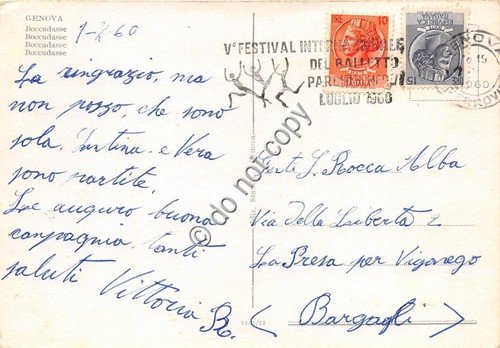 GENOVA
Boccadasse
Boccadasse
Boccadasse
Boccadasse
1-7-60
La ringrazio, ma
non posso, che sono
sola, Santina e Vera
sono partite.
Le auguro buona
compagnia, tanti
saluti Vittoria B.
V° FESTIVAL INTERNAZIONALE
DEL BALLETTO
PARCHI NERVI
LUGLIO 1960
LIRE 10
15
GENOVA
1960
S. Rocca Alba
Via della Libertà 2
La Presa per Viganego
(Bargagli)
© do not copy